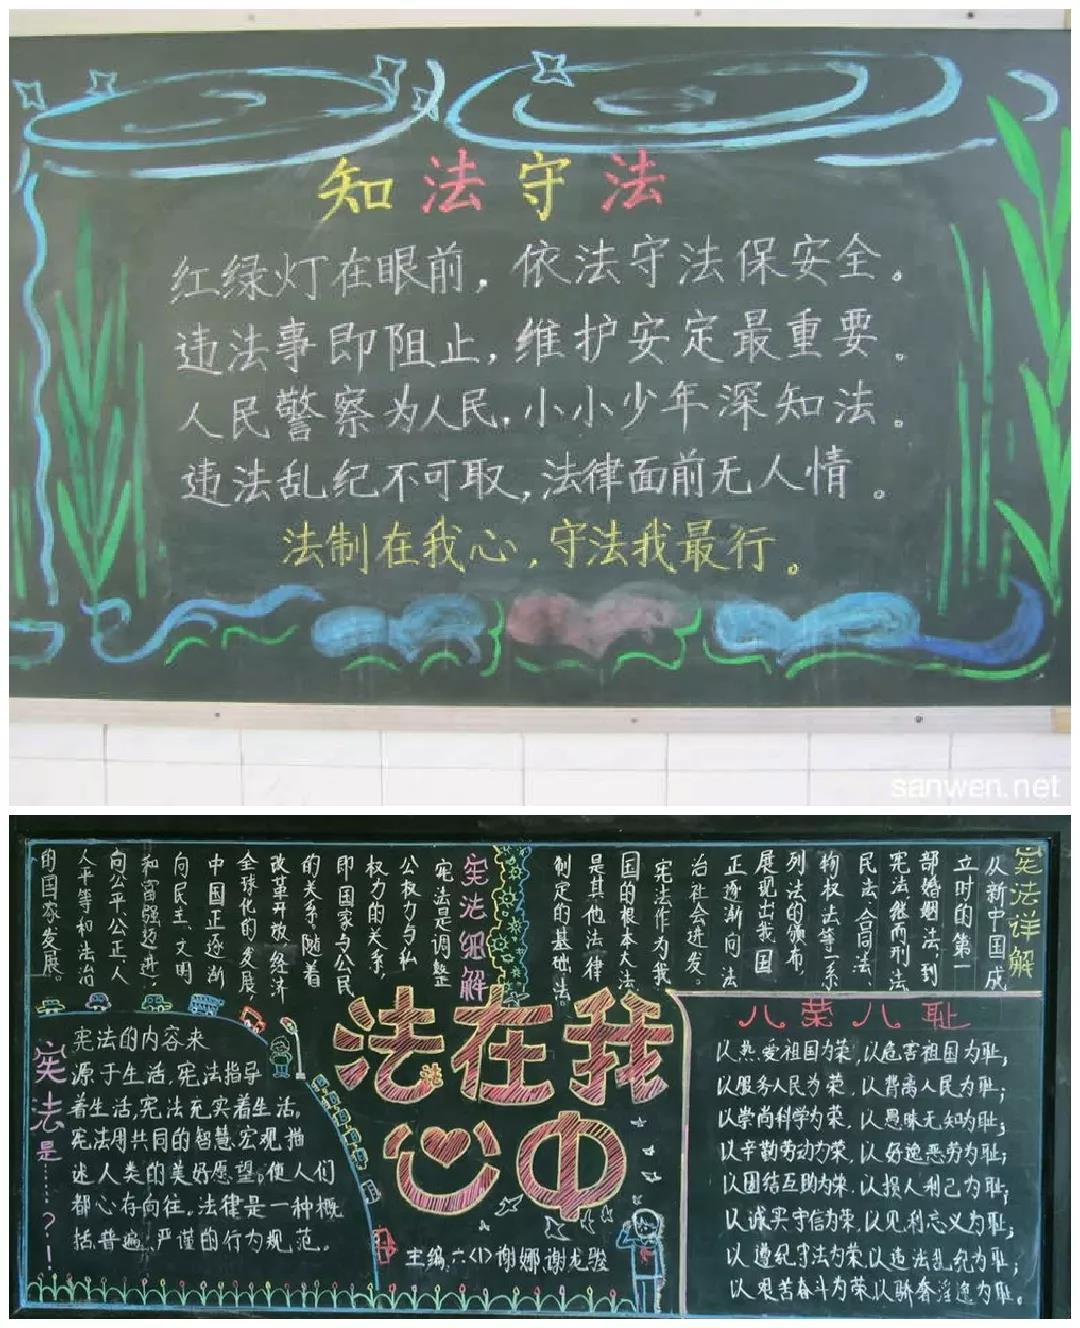 知法守法
红绿灯在眼前，依法守法保安全。
违法事即阻止，维护安定最重要。
人民警察为人民，小小少年深知法。
违法乱纪不可取，法律面前无人情。
法制在我心，守法我最行。
sanwen.net
宪法详解
从新中国成
立时的第一
部婚姻法，到
宪法继而刑法
民法、合同法、
物权法等一系
列法的颁布，
展现出我国
正逐渐向法
治社会进发。
宪法作为我
国的根本大法
是其他法律
制定的基础。法
宪法细解
宪法是调整
公权力与私
权力的关系，
即国家与公民
的关系。随着
改革开放，经济
全球化的发展，
中国正逐渐
向民主、文明
和富强迈进，
向公平、公正、人
人平等和法治
的国家发展。
宪法是……？！
宪法的内容来
源于生活，宪法指导
着生活，宪法充实着生活。
宪法用共同的智慧宏观描
述人类的美好愿望。使人们
都心存向往。法律是一种概
括、普遍、严谨的行为规范。
法在我
法
心中
主编：六（1）谢娜 谢龙骏
八荣八耻
以热爱祖国为荣，以危害祖国为耻；
以服务人民为荣，以背离人民为耻；
以崇尚科学为荣，以愚昧无知为耻；
以辛勤劳动为荣，以好逸恶劳为耻；
以团结互助为荣，以损人利己为耻；
以诚实守信为荣，以见利忘义为耻；
以遵纪守法为荣，以违法乱纪为耻；
以艰苦奋斗为荣，以骄奢淫逸为耻。